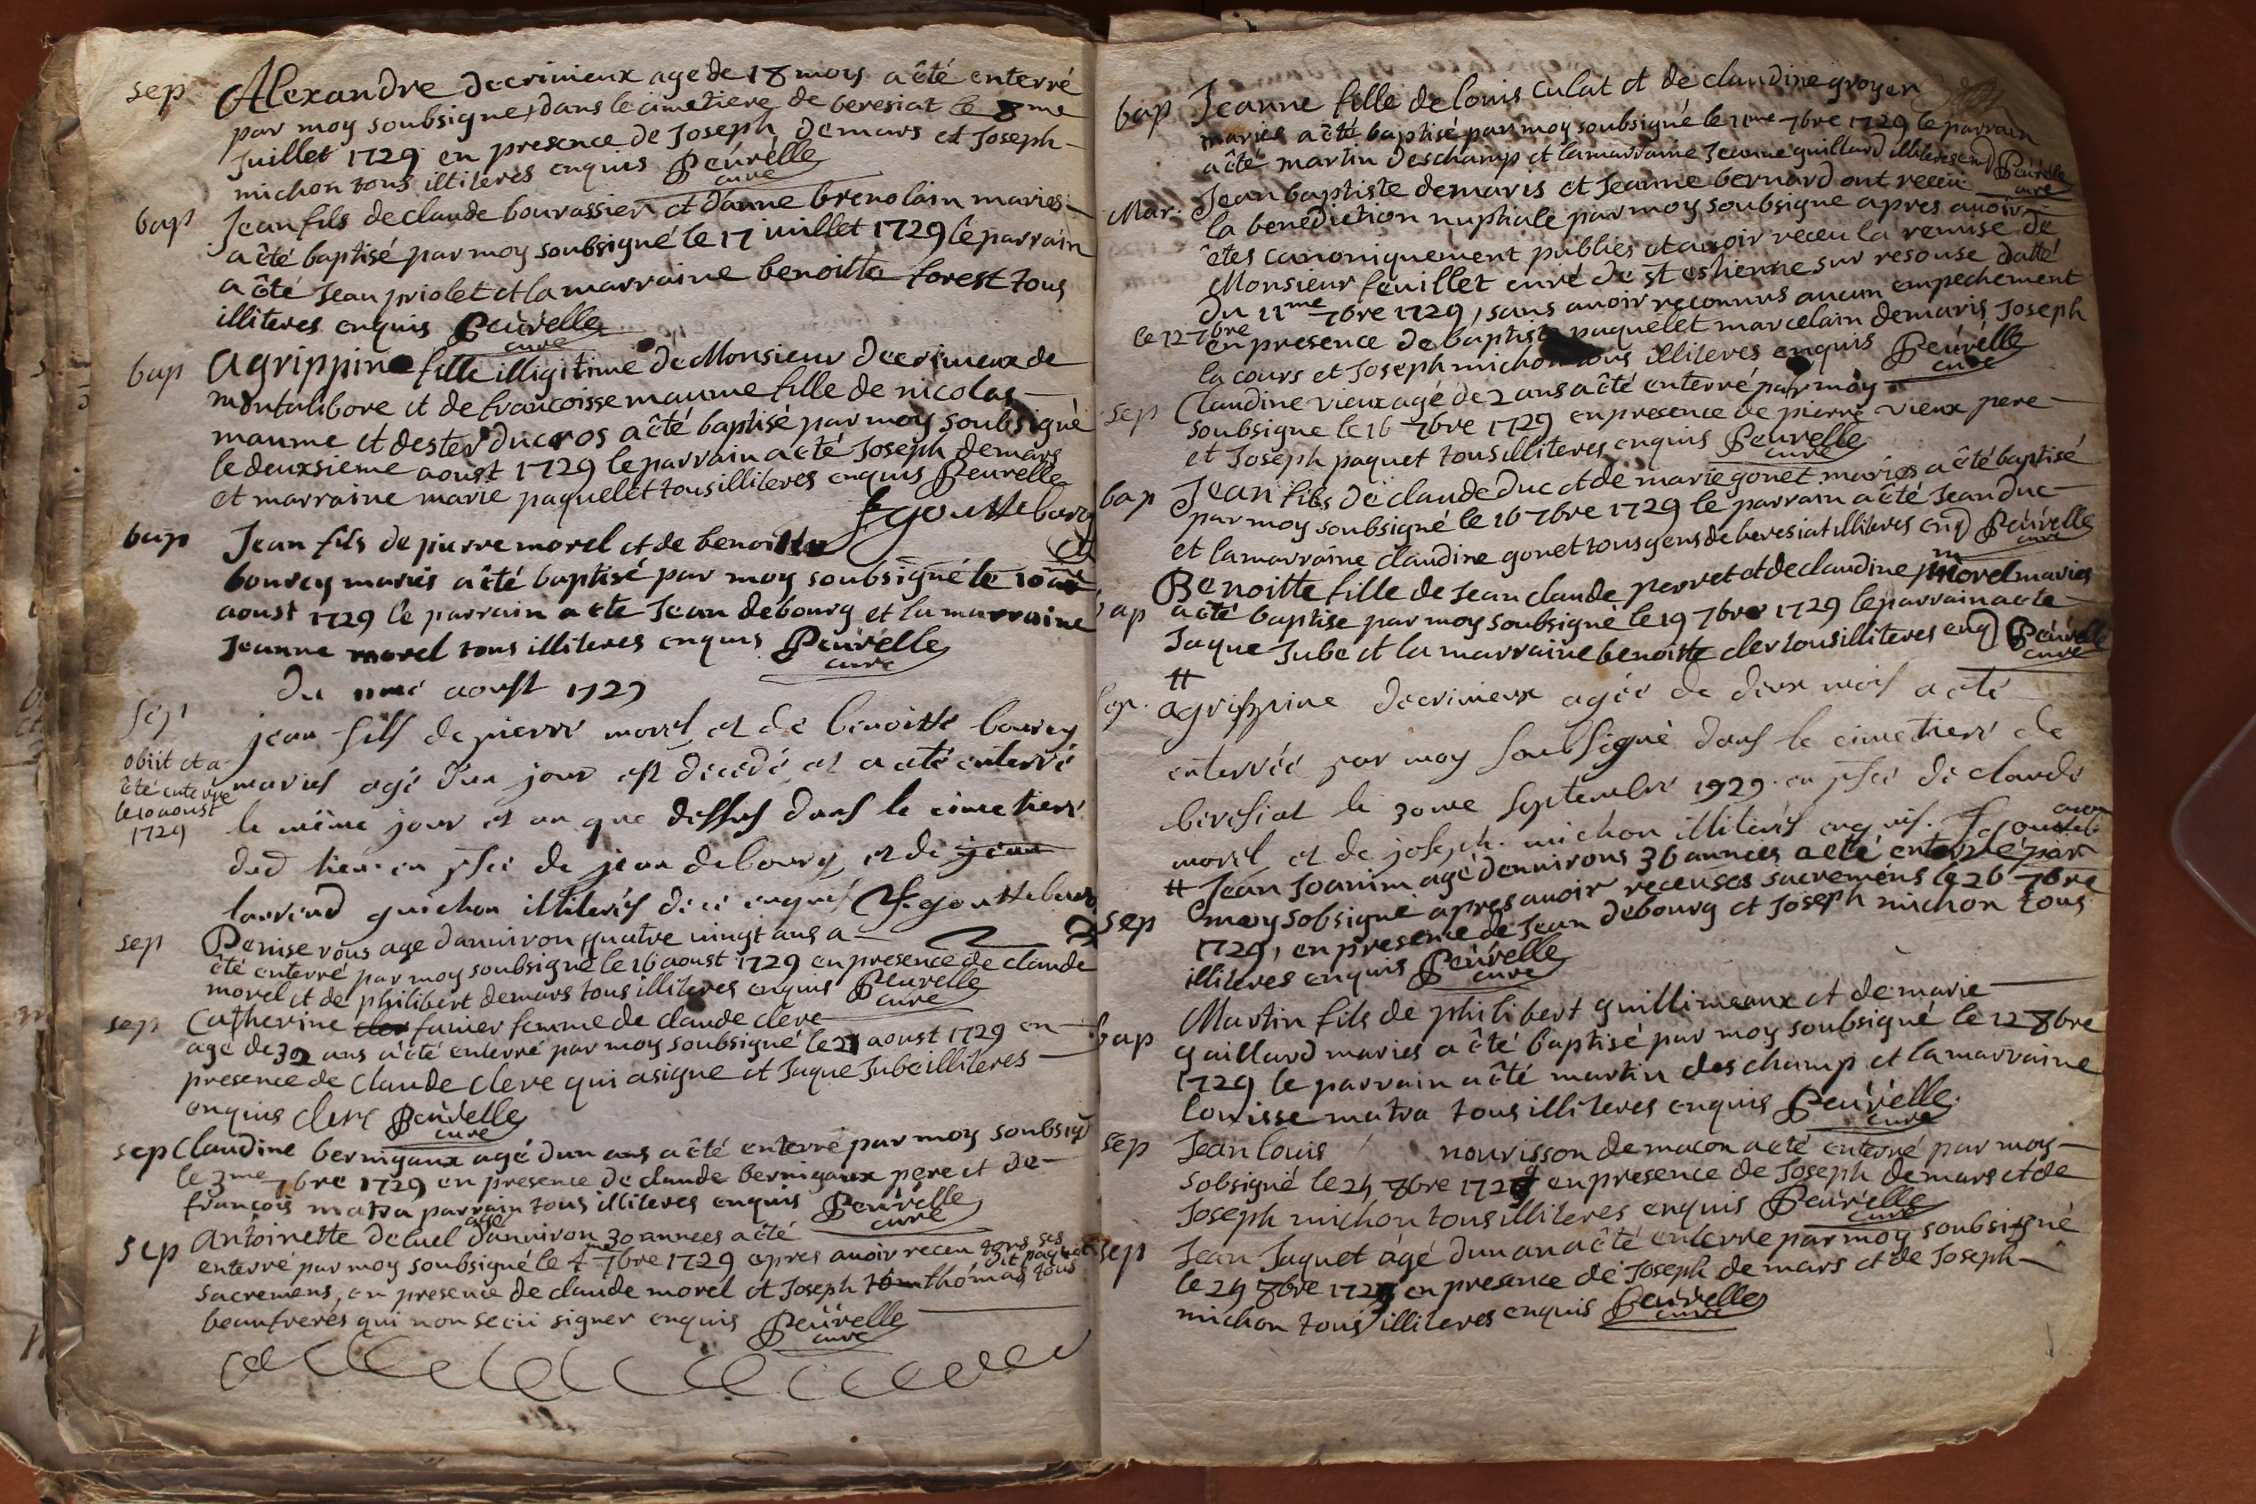 sep Alexandre decrinieux age de 18 moys a êté enterré
par moy soubsigné, dans le cimetiere de beresiat le 8me
Juillet 1729 en presence de Joseph demars et Joseph
michon tous illiteres enquis Peurelle
curé
bap Jean fils de claude bourassier et d'anne brenolain mariés
a êté baptisé par moy soubsigné le 17 juillet 1729 le parrain
a êté Jean priolet et la marraine benoitte forest tous
illiteres enquis Peurelle
curé
bap Agrippine fille illigitime de Monsieur decrinieux de
montalibore et de francoisse maume fille de nicolas
maume et dester ducros a êté baptisé par moy soubsigné
le deuxsieme aoust 1729 le parrain a eté Joseph demars
et marraine marie paquelet tous illiteres enquis Peurelle
bap Jean fils de pierre morel et de benoitte
bourcy mariés a êté baptisé par moy soubsigné le 10
aoust 1729 le parrain a ete Jean debourg et la marraine
Jeanne morel tous illiteres enquis Peurelle
curé
du aoust 1729
sep jean fils de pierre morel et de benoitte bourcy
obiit et a
êté enterre
le 10 aoust
1729
mariés agé d'un jour est decedé et a eté enterré
le même jour et an que dessus dans le cimetiere
dud lieu en pñce de jean debourg et de jean
laurend guichon illiterés de ce enquis
sep Denise rous age danviron quatre vingt ans a
êté enterré par moy soubsigné le 16 aoust 1729 en presence de claude
morel et de philibert demars tous illiteres enquis Peurelle
curé
sep Catherine fauier femme de claude clere
age de 32 ans a êté enterré par moy soubsigné le 21 aoust 1729 en
presence de Claude Clere qui a signe et Jaque Jube illiteres
enquis clere Peurelle
curé
sep Claudine bernigaux agé dun ans a êté enterré par moy soubsig
le 3me 7bre 1729 en presence de claude bernigaux pere et de
francois matra parrain tous illiteres enquis Peurelle
curé
sep Antoinette deluel agé danviron 30 annees a êté
enterré par moy soubsigné le 4me 7bre 1729 apres avoir receu tous ses
sacremens, en presence de claude morel et Joseph thomas dit paquet tous
beaufreres qui non sceu signer enquis Peurelle
curé
bap Jeanne fille de louis culat et de claudine groyer
mariés a êté baptisé par moy soubsigné le 11me 7bre 1729 le parrain
a êté martin deschamp et la marraine Jeanne guillard illiteres enq Peurelle
curé
Mar. Jean baptiste demaris et Jeanne bernard ont receu
la benediction nuptiale par moy soubsigné apres avoir
êtes canoniquement publiés et avoir receu la remise de
Monsieur feuillet curé de st estienne sur resouse datté
du 11me 7bre 1729, sans avoir reconnus aucun empechement
le 12 7bre
en presence de baptiste paquelet marcelain demaris Joseph
la cours et Joseph michon tous illiteres enquis Peurelle
curé
sep Claudine vieux agé de 2 ans a êté enterré par moy
soubsigne le 16 7bre 1729 en presence de pierre vieux pere
et Joseph paquet tous illiteres enquis Peurelle
curé
bap Jean fils de claude duc et de marie gonet mariés a êté baptisé
par moy soubsigné le 16 7bre 1729 le parrain a êté Jean duc
et la marraine claudine gonet tous gens de beresiat illiteres enq Peurelle
curé
bap Benoitte fille de Jean claude perret et de claudine morel mariés
a êté baptise par moy soubsigné le 19 7bre 1729 le parrain a ete
Jaque Jube et la marraine benoitte cler tous illiteres enq Peurelle
curé
#
sep. agrippine decrinieux agée de deux mois a eté
enterrée par moy soubsigné dans le cimetiere de
beresiat le 30me septembre 1929 en pñce de claude
morel et de joseph michon illiterés enquis.
# Jean Joanim agé denvirons 36 annees a êté enterré par
sep moy sobsigné apres avoir receu ses sacremens le 26 7bre
1729, en presence de Jean debourg et Joseph michon tous
illiteres enquis Peurelle
curé
bap Martin fils de philibert guillimeaux et de marie
gaillard mariés a êté baptisé par moy soubsigné le 12 8bre
1729 le parrain a êté martin des champ et la marraine
louisse matra tous illiteres enquis Peurelle
curé
sep Jean louis nourisson de macon a eté enterré par moy
sobsigné le 24 8bre 1729 en presence de Joseph demars et de
Joseph michon tous illiteres enquis Peurelle
curé
sep Jean Jaquet agé dun an a êté enterré par moy soubsigné
le 29 8bre 1729 en presance de Joseph demars et de Joseph
michon tous illiteres enquis Peurelle
curé